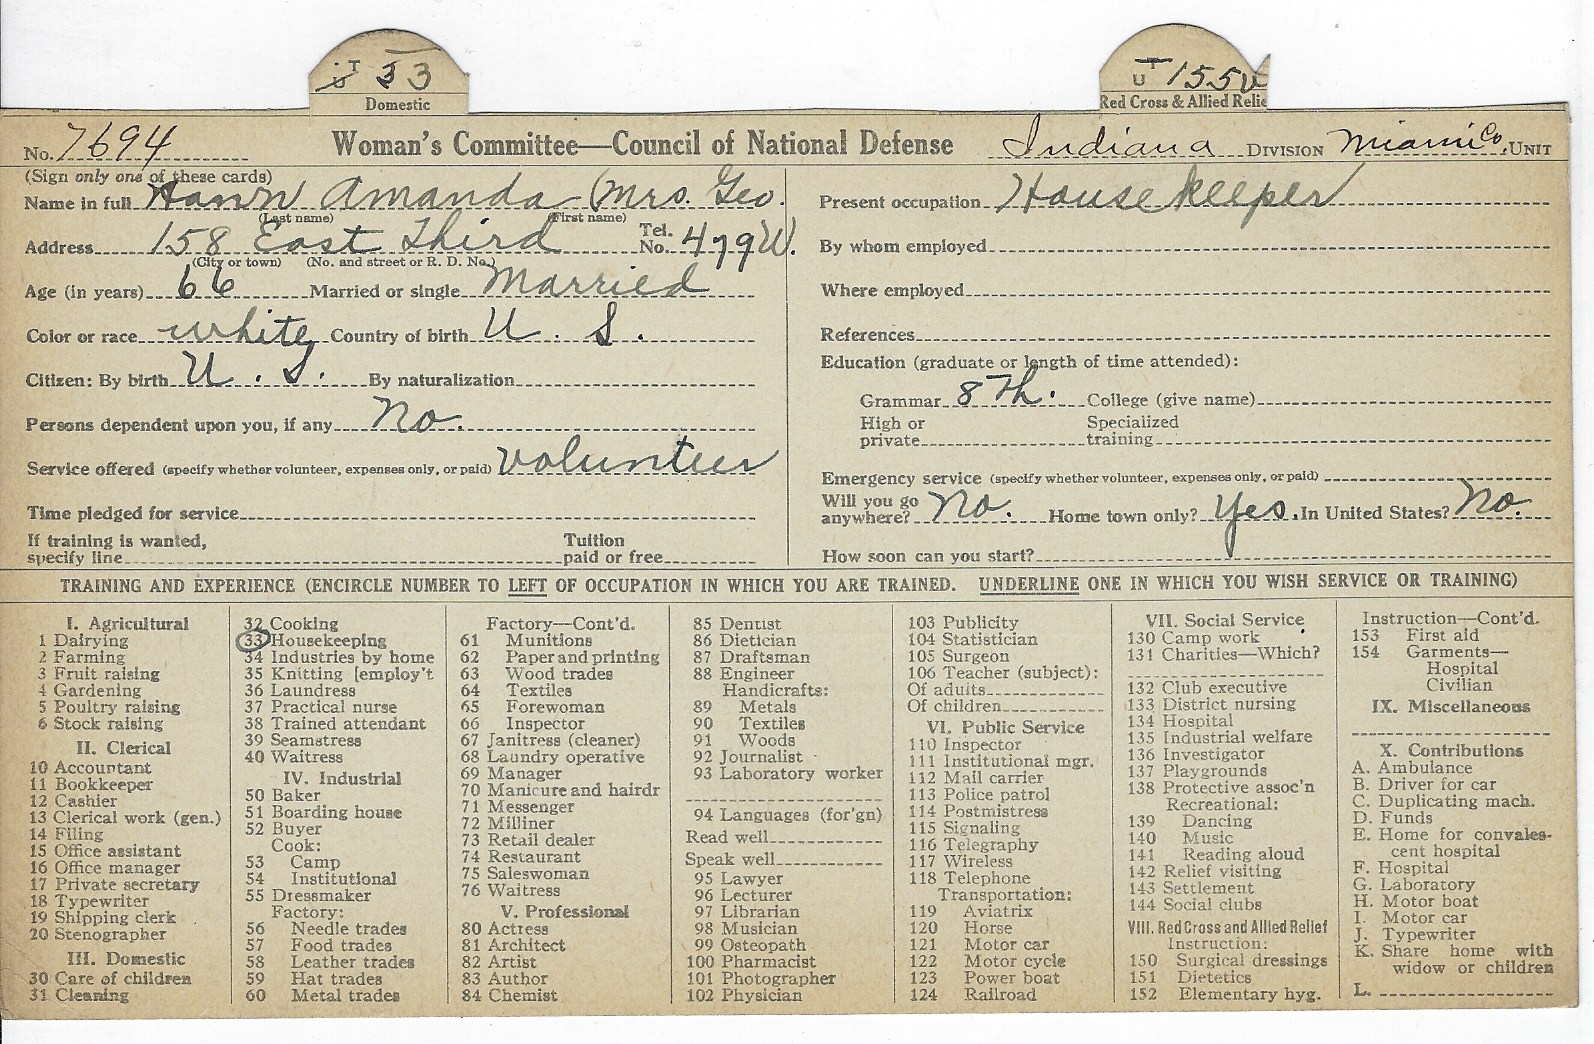 T U 33
Domestic
T U 155
Red Cross & Allied Relie
No. 7694 Woman's Committee—Council of National Defense Indiana DIVISION Miami Co. UNIT
(Sign only one of these cards)
Name in full Hawn Amanda (Mrs. Geo.
(Last name) (First name)
Address 158 East Third Tel. No. 479W.
(City or town) (No. and street or R. D. No.)
Age (in years) 66 Married or single Married
Color or race white Country of birth U. S.
Citizen: By birth U. S. By naturalization
Persons dependent upon you, if any No.
Service offered (specify whether volunteer, expenses only, or paid) Volunteer
Time pledged for service
If training is wanted,
specify line
Tuition
paid or free
Present occupation Housekeeper
By whom employed
Where employed
References
Education (graduate or length of time attended):
Grammar 8Th. College (give name)
High or
private
Specialized
training
Emergency service (specify whether volunteer, expenses only, or paid)
Will you go
anywhere? No. Home town only? Yes. In United States? No.
How soon can you start?
TRAINING AND EXPERIENCE (ENCIRCLE NUMBER TO LEFT OF OCCUPATION IN WHICH YOU ARE TRAINED. UNDERLINE ONE IN WHICH YOU WISH SERVICE OR TRAINING)
I. Agricultural
1 Dairying
2 Farming
3 Fruit raising
4 Gardening
5 Poultry raising
6 Stock raising
II. Clerical
10 Accountant
11 Bookkeeper
12 Cashier
13 Clerical work (gen.)
14 Filing
15 Office assistant
16 Office manager
17 Private secretary
18 Typewriter
19 Shipping clerk
20 Stenographer
III. Domestic
30 Care of children
31 Cleaning
32 Cooking
33 Housekeeping
34 Industries by home
35 Knitting [employ't
36 Laundress
37 Practical nurse
38 Trained attendant
39 Seamstress
40 Waitress
IV. Industrial
50 Baker
51 Boarding house
52 Buyer
Cook:
53 Camp
54 Institutional
55 Dressmaker
Factory:
56 Needle trades
57 Food trades
58 Leather trades
59 Hat trades
60 Metal trades
Factory—Cont'd.
61 Munitions
62 Paper and printing
63 Wood trades
64 Textiles
65 Forewoman
66 Inspector
67 Janitress (cleaner)
68 Laundry operative
69 Manager
70 Manicure and hairdr
71 Messenger
72 Milliner
73 Retail dealer
74 Restaurant
75 Saleswoman
76 Waitress
V. Professional
80 Actress
81 Architect
82 Artist
83 Author
84 Chemist
85 Dentist
86 Dietician
87 Draftsman
88 Engineer
Handicrafts:
89 Metals
90 Textiles
91 Woods
92 Journalist
93 Laboratory worker
94 Languages (for'gn)
Read well
Speak well
95 Lawyer
96 Lecturer
97 Librarian
98 Musician
99 Osteopath
100 Pharmacist
101 Photographer
102 Physician
103 Publicity
104 Statistician
105 Surgeon
106 Teacher (subject):
Of adults
Of children
VI. Public Service
110 Inspector
111 Institutional mgr.
112 Mail carrier
113 Police patrol
114 Postmistress
115 Signaling
116 Telegraphy
117 Wireless
118 Telephone
Transportation:
119 Aviatrix
120 Horse
121 Motor car
122 Motor cycle
123 Power boat
124 Railroad
VII. Social Service
130 Camp work
131 Charities—Which?
132 Club executive
133 District nursing
134 Hospital
135 Industrial welfare
136 Investigator
137 Playgrounds
138 Protective assoc'n
Recreational:
139 Dancing
140 Music
141 Reading aloud
142 Relief visiting
143 Settlement
144 Social clubs
VIII. Red Cross and Allied Relief
Instruction:
150 Surgical dressings
151 Dietetics
152 Elementary hyg.
Instruction—Cont'd.
153 First aid
154 Garments—
Hospital
Civilian
IX. Miscellaneous
X. Contributions
A. Ambulance
B. Driver for car
C. Duplicating mach.
D. Funds
E. Home for convales-
cent hospital
F. Hospital
G. Laboratory
H. Motor boat
I. Motor car
J. Typewriter
K. Share home with
widow or children
L.